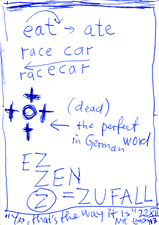 eat → ate
race car
racecar
(dead)
← the perfect
in German word
EZ
ZEN
Z = ZUFALL
"Yes, that's the way it is"